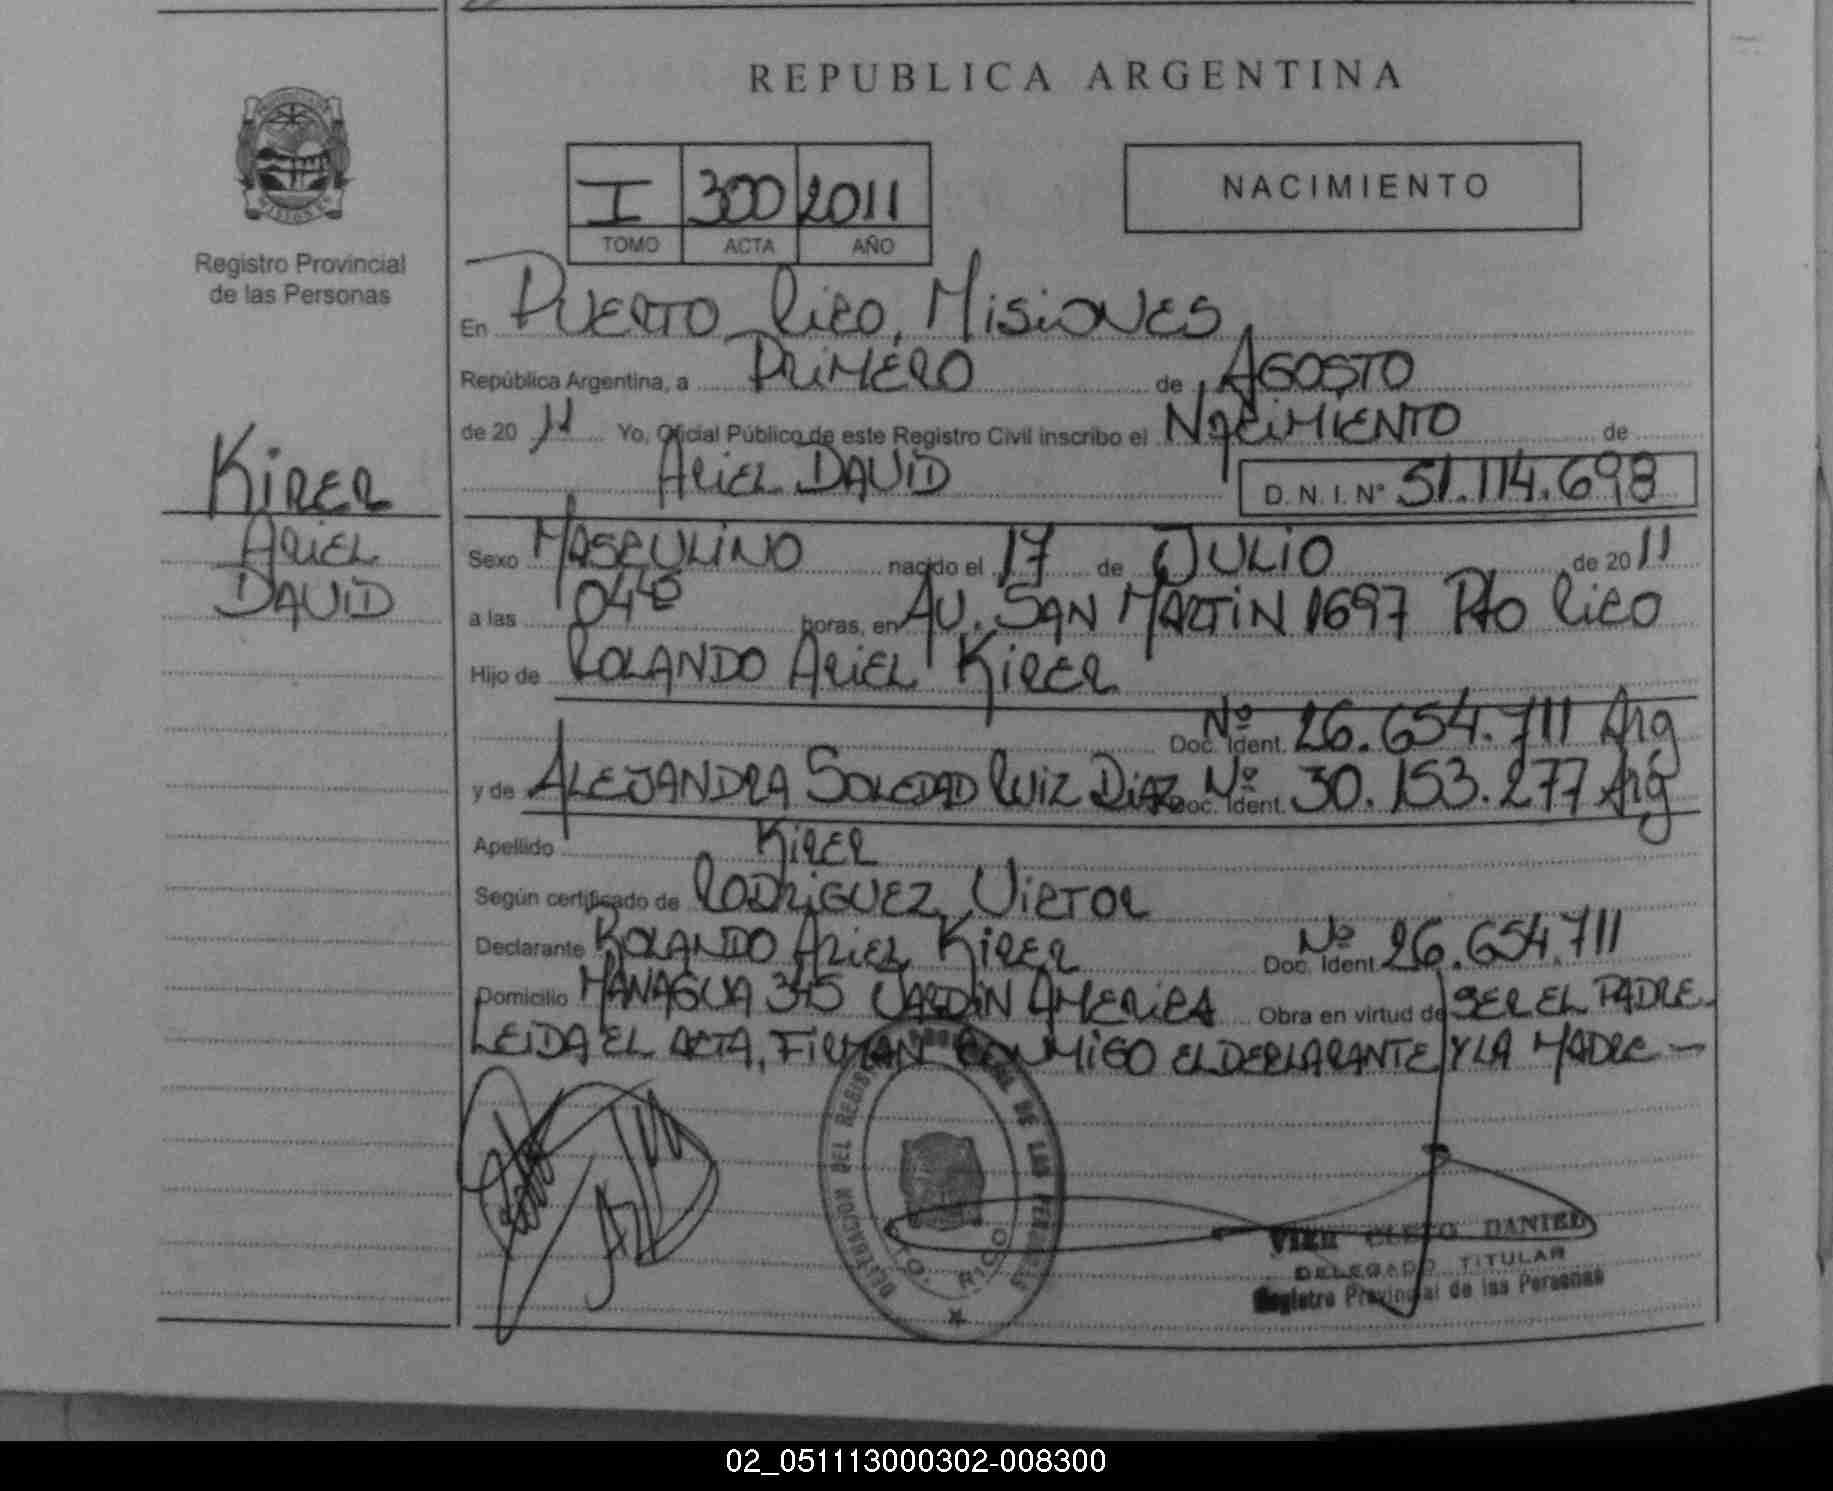 REPUBLICA ARGENTINA
I 300 2011
TOMO ACTA AÑO
NACIMIENTO
Registro Provincial
de las Personas
KIRER
ARIEL
DAVID
En PUERTO RICO, MISIONES
República Argentina, a PRIMERO de AGOSTO
de 20 11 Yo, Oficial Público de este Registro Civil inscribo el NACIMIENTO de
ARIEL DAVID D.N.I. Nº 51.114.698
Sexo MASCULINO nacido el 17 de JULIO de 20 11
a las 04 horas, en AV. SAN MARTIN 1697 Pto RICO
Hijo de ROLANDO ARIEL KIRER
Doc. Ident. Nº 26.654.711 Arg
y de ALEJANDRA SOLEDAD RUIZ DIAZ Doc. Ident. Nº 30.153.277 Arg
Apellido KIRER
Según certificado de RODRIGUEZ VICTOR
Declarante ROLANDO ARIEL KIRER Doc. Ident. Nº 26.654.711
Domicilio MANAGUA 345 JARDIN AMERICA Obra en virtud de SER EL PADRE
LEIDA EL ACTA, FIRMAN CONMIGO EL DECLARANTE Y LA MADRE —
DELEGACION DEL REGISTRO DE LAS PERSONAS
PTO. RICO
CLETO DANIEL
DELEGADO TITULAR
Registro Provincial de las Personas
02_051113000302-008300